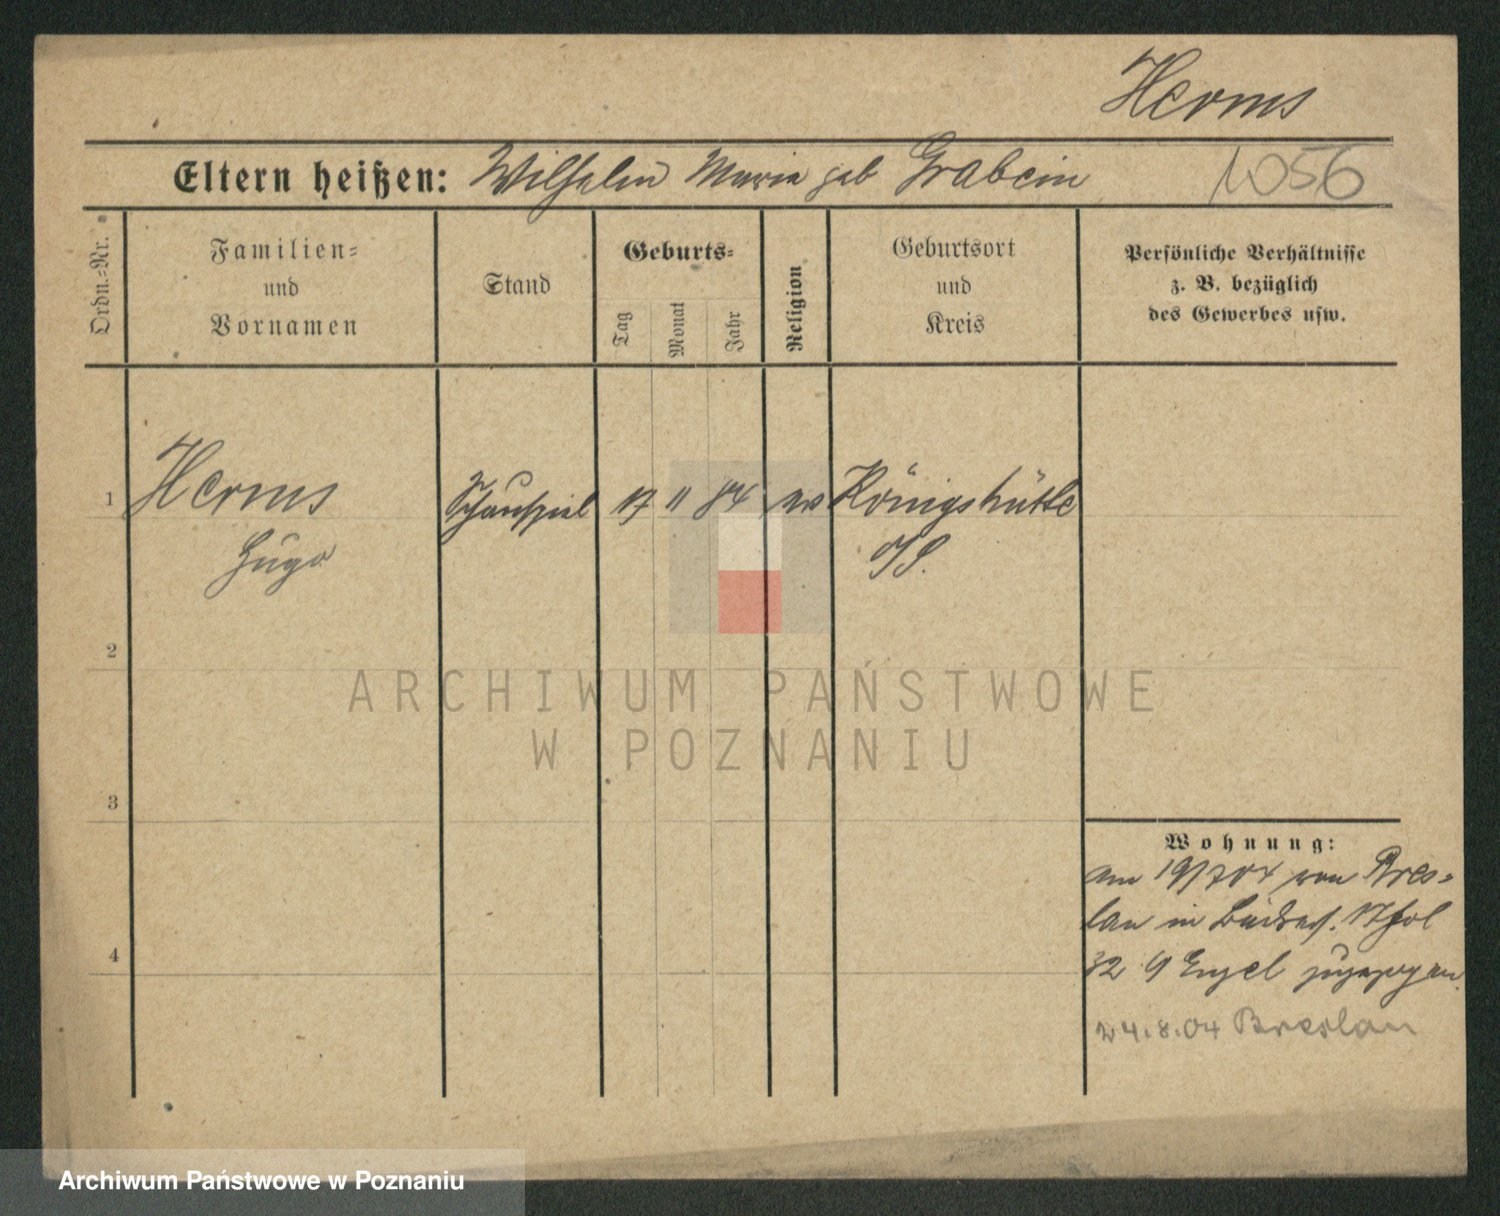 Herms
Eltern heißen: Wilhelm Maria geb Grabein
1056
Ordn.=Nr.
Familien=
und
Vornamen
Stand
Geburts=
Tag
Monat
Jahr
Religion
Geburtsort
und
Kreis
Persönliche Verhältnisse
z. B. bezüglich
des Gewerbes usw.
1
Herms
Hugo
Schauspiel
17 11 84
ev
Königshütte
O/S.
2
ARCHIWUM PAŃSTWOWE
W POZNANIU
3
Wohnung:
am 19/7 04 von Bres=
lau in
4
32 zugezogen.
24.8.04 Breslau
Archiwum Państwowe w Poznaniu